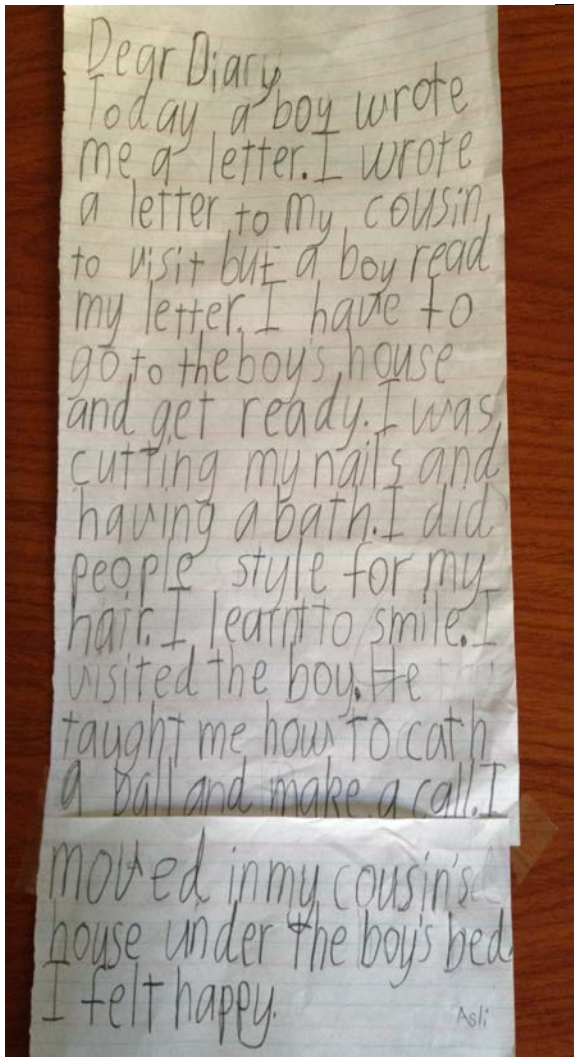 Dear Diary,
Today a boy wrote
me a letter. I wrote
a letter to my cousin
to visit but a boy read
my letter. I have to
go to the boy's house
and get ready. I was
cutting my nails and
having a bath. I did
people style for my
hair. I learnt to smile. I
visited the boy. He
taught me how to cath
a ball and make a call. I
moved in my cousin's
house under the boy's bed.
I felt happy.
Asli